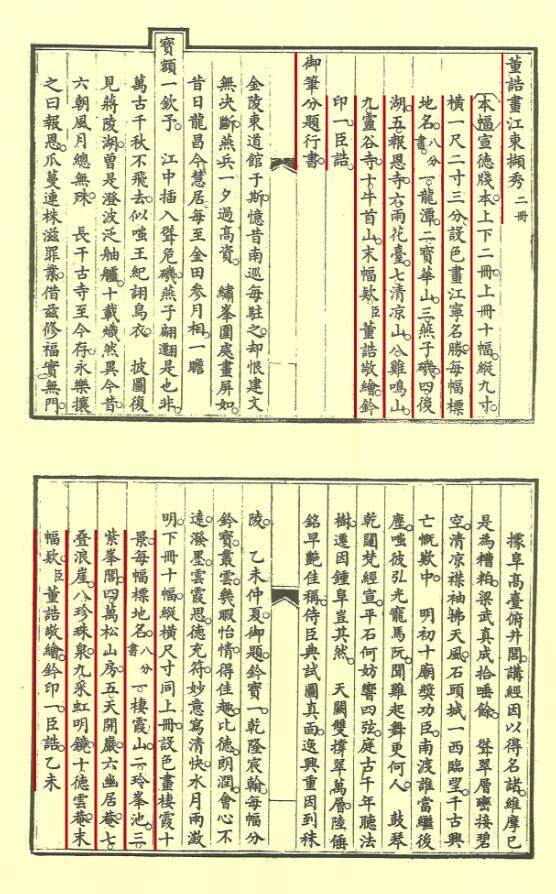 董誥畫江東擷秀 二冊
本幅宣德牋本上下二冊。上冊十幅。縱九寸。
橫一尺二寸三分。設色畫江寧名勝。每幅標
地名。八分書。一龍潭。二寶華山。三燕子磯。四後
湖。五報恩寺。六雨花臺。七清凉山。八雞鳴山。
九靈谷寺。十牛首山。末幅欵。臣董誥敬繪。鈐
印一。臣誥。
御筆分題行書。
金陵東道館于斯。憶昔南巡每駐之。却恨建文
無决斷。燕兵一夕過高資。 繡峯圍處畫屏如。
昔日龍昌今慧居。每至金田參月相。一瞻
寶額一欽予。 江中插入聳危磯。燕子翩翾是也非。
萬古千秋不飛去。似嗤王紀詡烏衣。 披圖復
見蔣陵湖。曾是澄波泛舳艫。十載熾然異今昔。
六朝風月總無殊。 長干古寺至今存。永樂攘
之曰報恩。爪蔓連株滋罪業。借兹修福實無門。
據阜高臺俯井閭。講經因以得名諸。維摩已
是為糟粕。梁武真成拾唾餘。 聳翠層巒接碧
空。清凉襟袖拂天風。石頭城一西臨望。千古興
亡慨歎中。 明初十廟獎功臣。南渡誰當繼後
塵。嗤彼弘光寵馬阮。聞雞起舞更何人。 鼓琴
乾闥梵經宣。平石何妨響四弦。庭古千年聽法
樹。遷因鍾阜豈其然。 天闕雙撐翠萬層。陸倕
銘早艷佳稱。侍臣典試圖真面。逸興重因到秣
陵。 乙未仲夏。御題。鈐寶一。乾隆宸翰。每幅分
鈐寶。叢雲。幾暇怡情。得佳趣。比德。朗潤。會心不
遠。潑墨。雲霞思。德充符。妙意寫清快。水月兩澂
明。下冊十幅。縱橫尺寸同上冊。設色畫棲霞十
景。每幅標地名。八分書。一棲霞山。二玲峯池。三
紫峯閣。四萬松山房。五天開巖。六幽居菴。七
叠浪崖。八珍珠泉。九采虹明鏡。十德雲菴。末
幅欵。臣董誥敬繪。鈐印一。臣誥。乙未